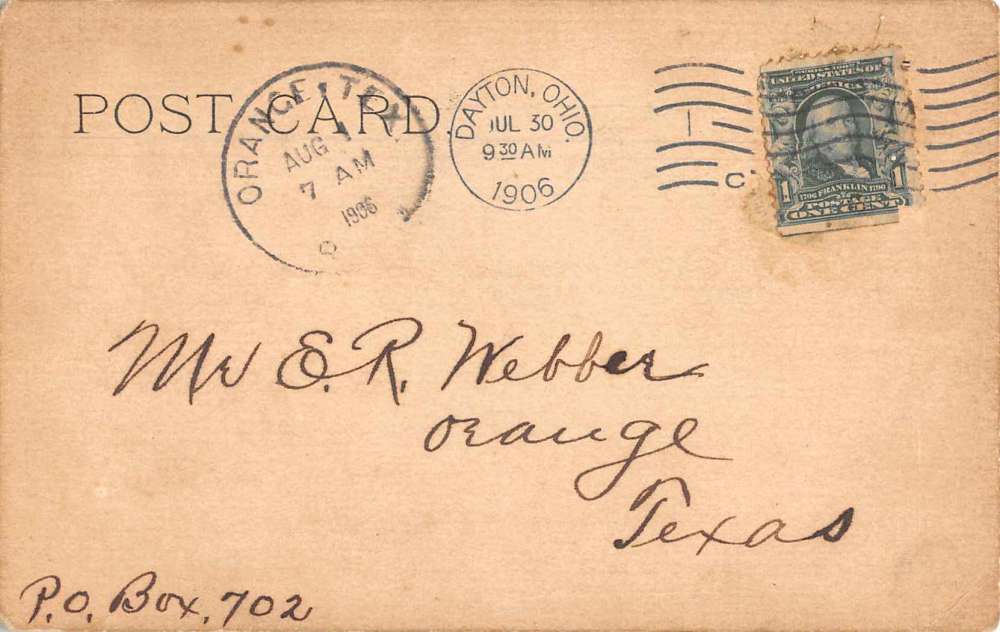 POST CARD.
ORANGE, TEX.
AUG 1
7 AM
1906
DAYTON, OHIO.
JUL 30
9 30 AM
1906
UNITED STATES OF
AMERICA
1 1706 FRANKLIN 1790 1
POSTAGE
ONE CENT
Mr E. R. Webber
Orange
Texas
P.O. Box, 702